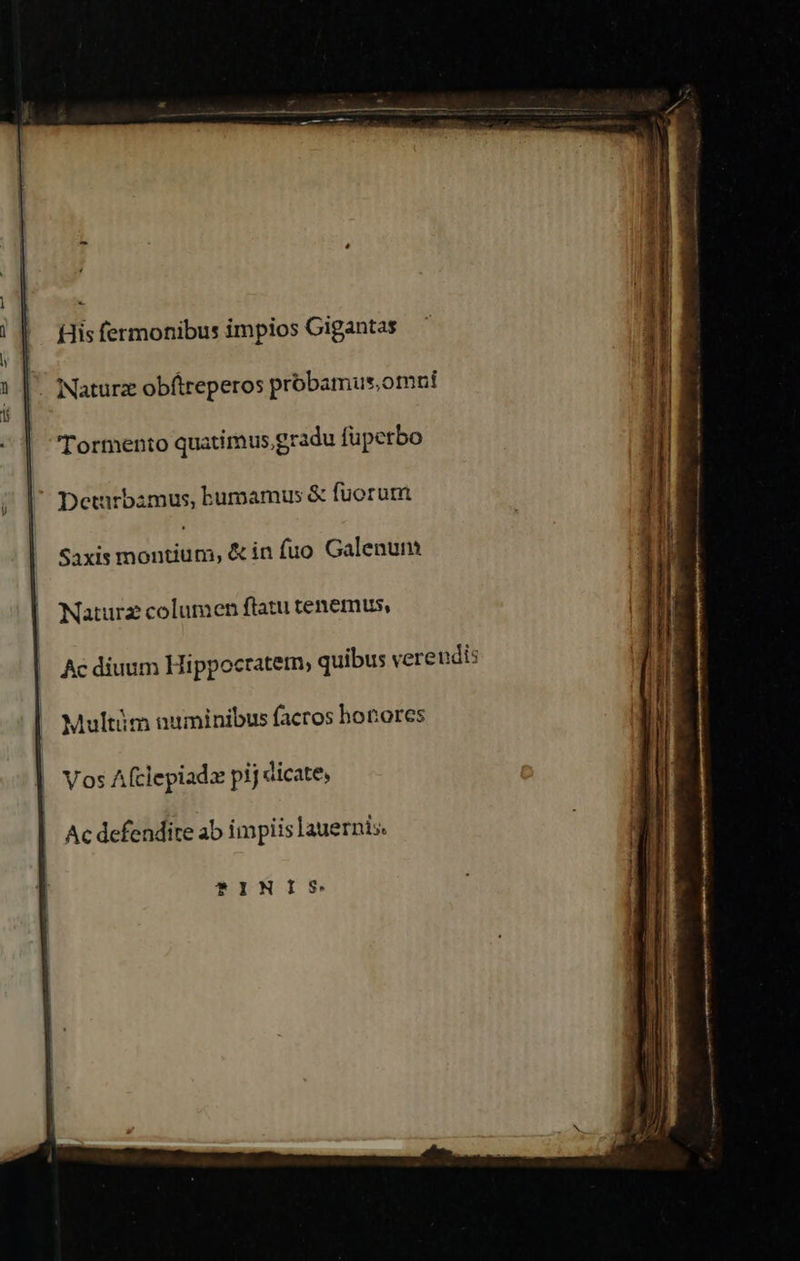 His ſermonibus impios Gigantas
Naturæ obſtreperos pròbamus,omni
Tormento quatimus,gradu ſuperbo
Deturbamus, humamus & ſuorum
Saxis montium, & in ſuo Galenum
Naturæ columen ſtatu tenemus,
Ac diuum Hippocratem, quibus verendis
Multùm numinibus ſacros honores
Vos Aſclepiadæ pij dicate,
Ac defendite ab impiis lauernis.
FINIS.